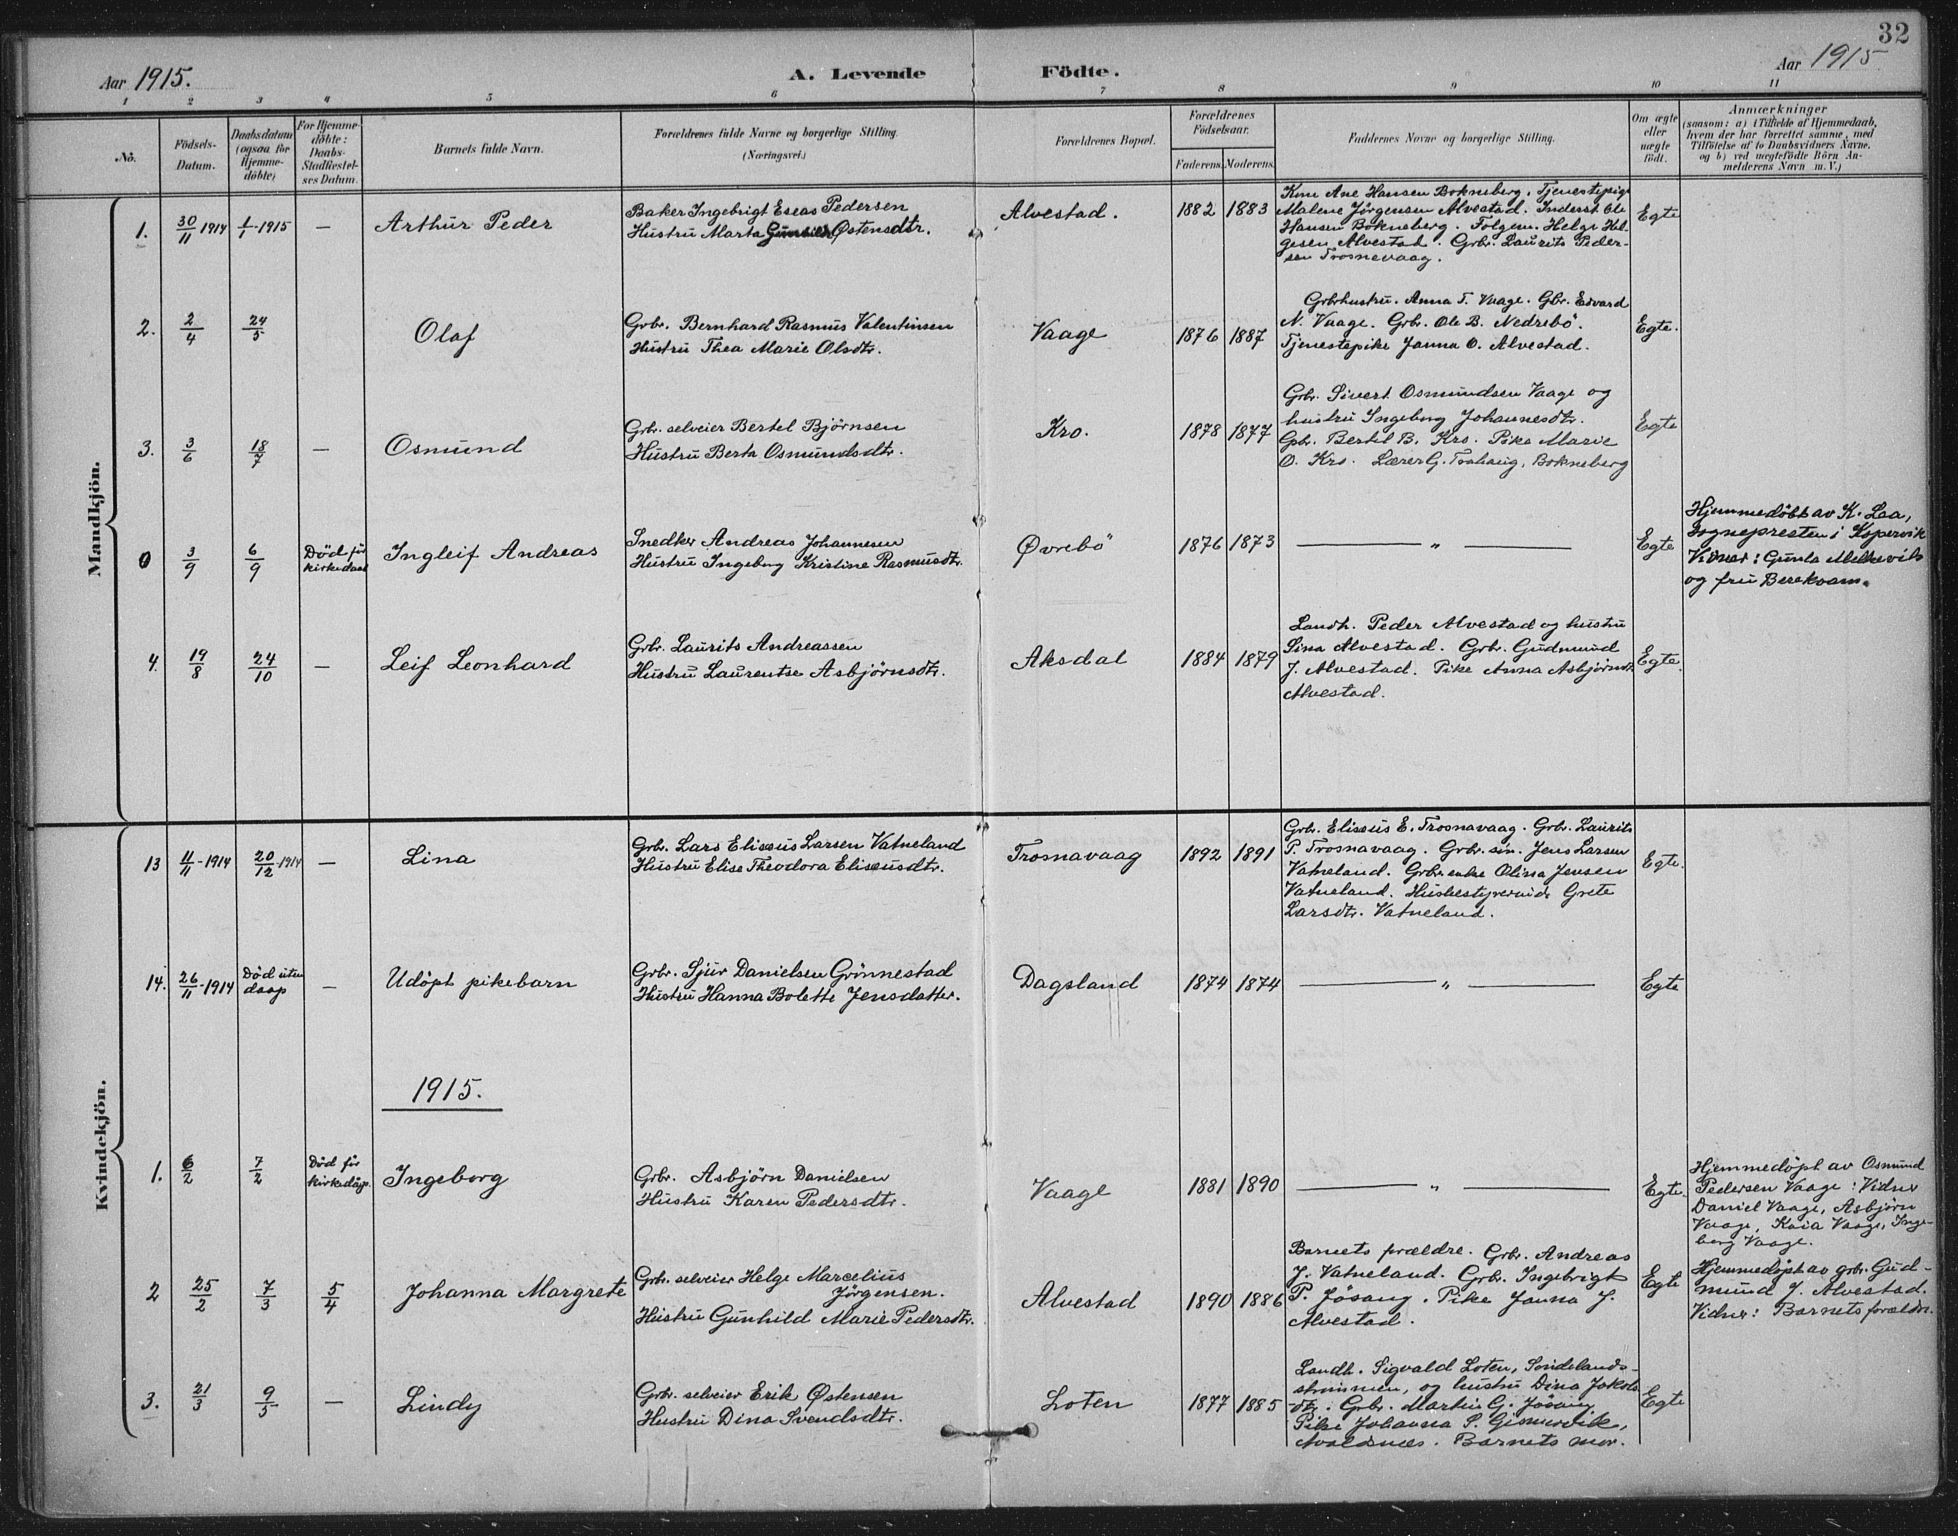 32
Aar 1915.
A. Levende Födte.
Aar 1915
1 2 3 4 5 6 7 8 9 10 11
No.
Födsels-
Datum.
Daabsdatum
(ogsaa for
Hjemme-
döbte)
For Hjemme-
döbte:
Daabs-
Stadfæstel-
ses Datum.
Barnets fulde Navn.
Forældrenes fulde Navne og borgerlige Stilling.
(Næringsvei.)
Forældrenes Bopæl.
Forældrenes
Födselsaar.
Faderens.
Moderens.
Faddernes Navne og borgerlige Stilling.
Om ægte
eller
uægte
födt.
Anmærkninger
(saasom: a) i Tilfælde af Hjemmedaab,
hvem der har forrettet samme, med
Tilföielse af to Daabsvidners Navne,
og b) ved uægtefödte Börn An-
melderens Navn m. V.)
Mandkjön.
1.
30/11 1914
1/1-1915
—
Arthur Peder
Baker Ingebrigt Eseas Pedersen
Hustru Marta Østensdtr.
Alvestad.
1882
1883
Ane Hansen Bokneberg. Tjenestepige
Malene Jørgensen Alvestad. Inderst Ole
Hansen Bokneberg. Folgem. Helge Hel-
gesen Alvestad. Grbr. Laurits Peder-
sen Trosnevaag.
Egte
2.
2/4
24/5
Olaf
Grbr. Bernhard Rasmus Valentinsen
Hustru Thea Marie Olsdtr.
Vaage
1876
1887
Grbrhustru. Anna T. Vaage. Gbr. Edvard
N. Vaage. Grbr. Ole B. Nedrebö.
Tjenestepike Janna O. Alvestad.
Egte.
3.
3/6
18/7
—
Osmund
Grbr. selveier Bertel Bjørnsen
Hustru Berta Osmundsdtr.
Kro.
1878
1877
Grbr. Sivert Osmundsen Vaage og
hustru Ingeborg Johannesdtr.
Gbr. Bertel B. Kro. Pike Marie
O. Kro. Lærer G. Trohaug, Bokneberg
Egte
0
3/9
6/9
Død før
kirkedaab
Ingleif Andreas
Snedker Andreas Johannesen
Hustru Ingeborg Kristine Rasmusdtr.
Øvrebö
1876
1873
— " —
Egte
Hjemmedöbt av K. Laa,
Sognepresten i Kopervik
Vidner: Gunla
og fru Berekvam.
4.
19/8
24/10
—
Leif Leonhard
Grbr. Laurits Andreassen
Hustru Laurentse Asbjørnsdtr.
Aksdal
1884
1879
Landh. Peder Alvestad og hustru
Sina Alvestad. Grbr. Gudmund
J. Alvestad. Pike Anna Asbjørnsdtr
Alvestad.
Egte.
Kvindekjön.
13
11/11-1914
20/12-1914
—
Lina
Grbr. Lars Eliseus Larsen Vatneland
Hustru Elise Theodora Eliseusdtr.
Trosnavaag
1892
1891
Grbr. Eliseus E. Trosnavaag. Grbr. Laurits
P. Trosnavaag. Grbr. søn. Jens Larsen
Vatneland. Grbr enke Olina Jensen
Vatneland. Husbestyrerinde Grete
Larsdtr. Vatneland.
Egte.
14.
26/11-1914
Død uten
daap
—
Udöpt pikebarn
Grbr. Sjur Danielsen Grönnestad
Hustru Hanna Bolette Jensdatter.
Dagsland
1874
1874
— " —
Egte
1915.
1.
6/2
7/2
Død før
kirkedåp.
Ingeborg
Grbr. Asbjörn Danielsen
Hustru Karen Pedersdtr.
Vaage
1881
1890
— " —
Egte.
Hjemmedöpt av Osmund
Pedersen Vaage: Vidner
Daniel Vaage, Asbjørn
Vaage, Kaia Vaage, Inge-
borg Vaage.
2
25/2
7/3
5/4
Johanna Margrete
Grbr. selveier Helge Marcelius
Jörgensen.
Hustru Gunhild Marie Pedersdtr.
Alvestad
1890
1886
Barnets forældre. Grbr. Andreas
J. Vatneland. Grbr. Ingebrigt
P. Jösang. Pike Janna J.
Alvestad.
Egte
Hjemmedöpt av grbr. Gud-
mund J. Alvestad.
Vidner: Barnets forældre.
3.
21/3
9/5
—
Lindy
Grbr. selveier Erik Östensen
Hustru Dina Svendsdtr.
Loten
1877
1885
Landh. Sigvald Loten, Sondelands-
strømmen, og hustru Dina Jakobs
dtr. Grbr. Martin G. Jösang,
Pike Johanna S. Gismervik,
Avaldsnes. Barnets mor.
Egte